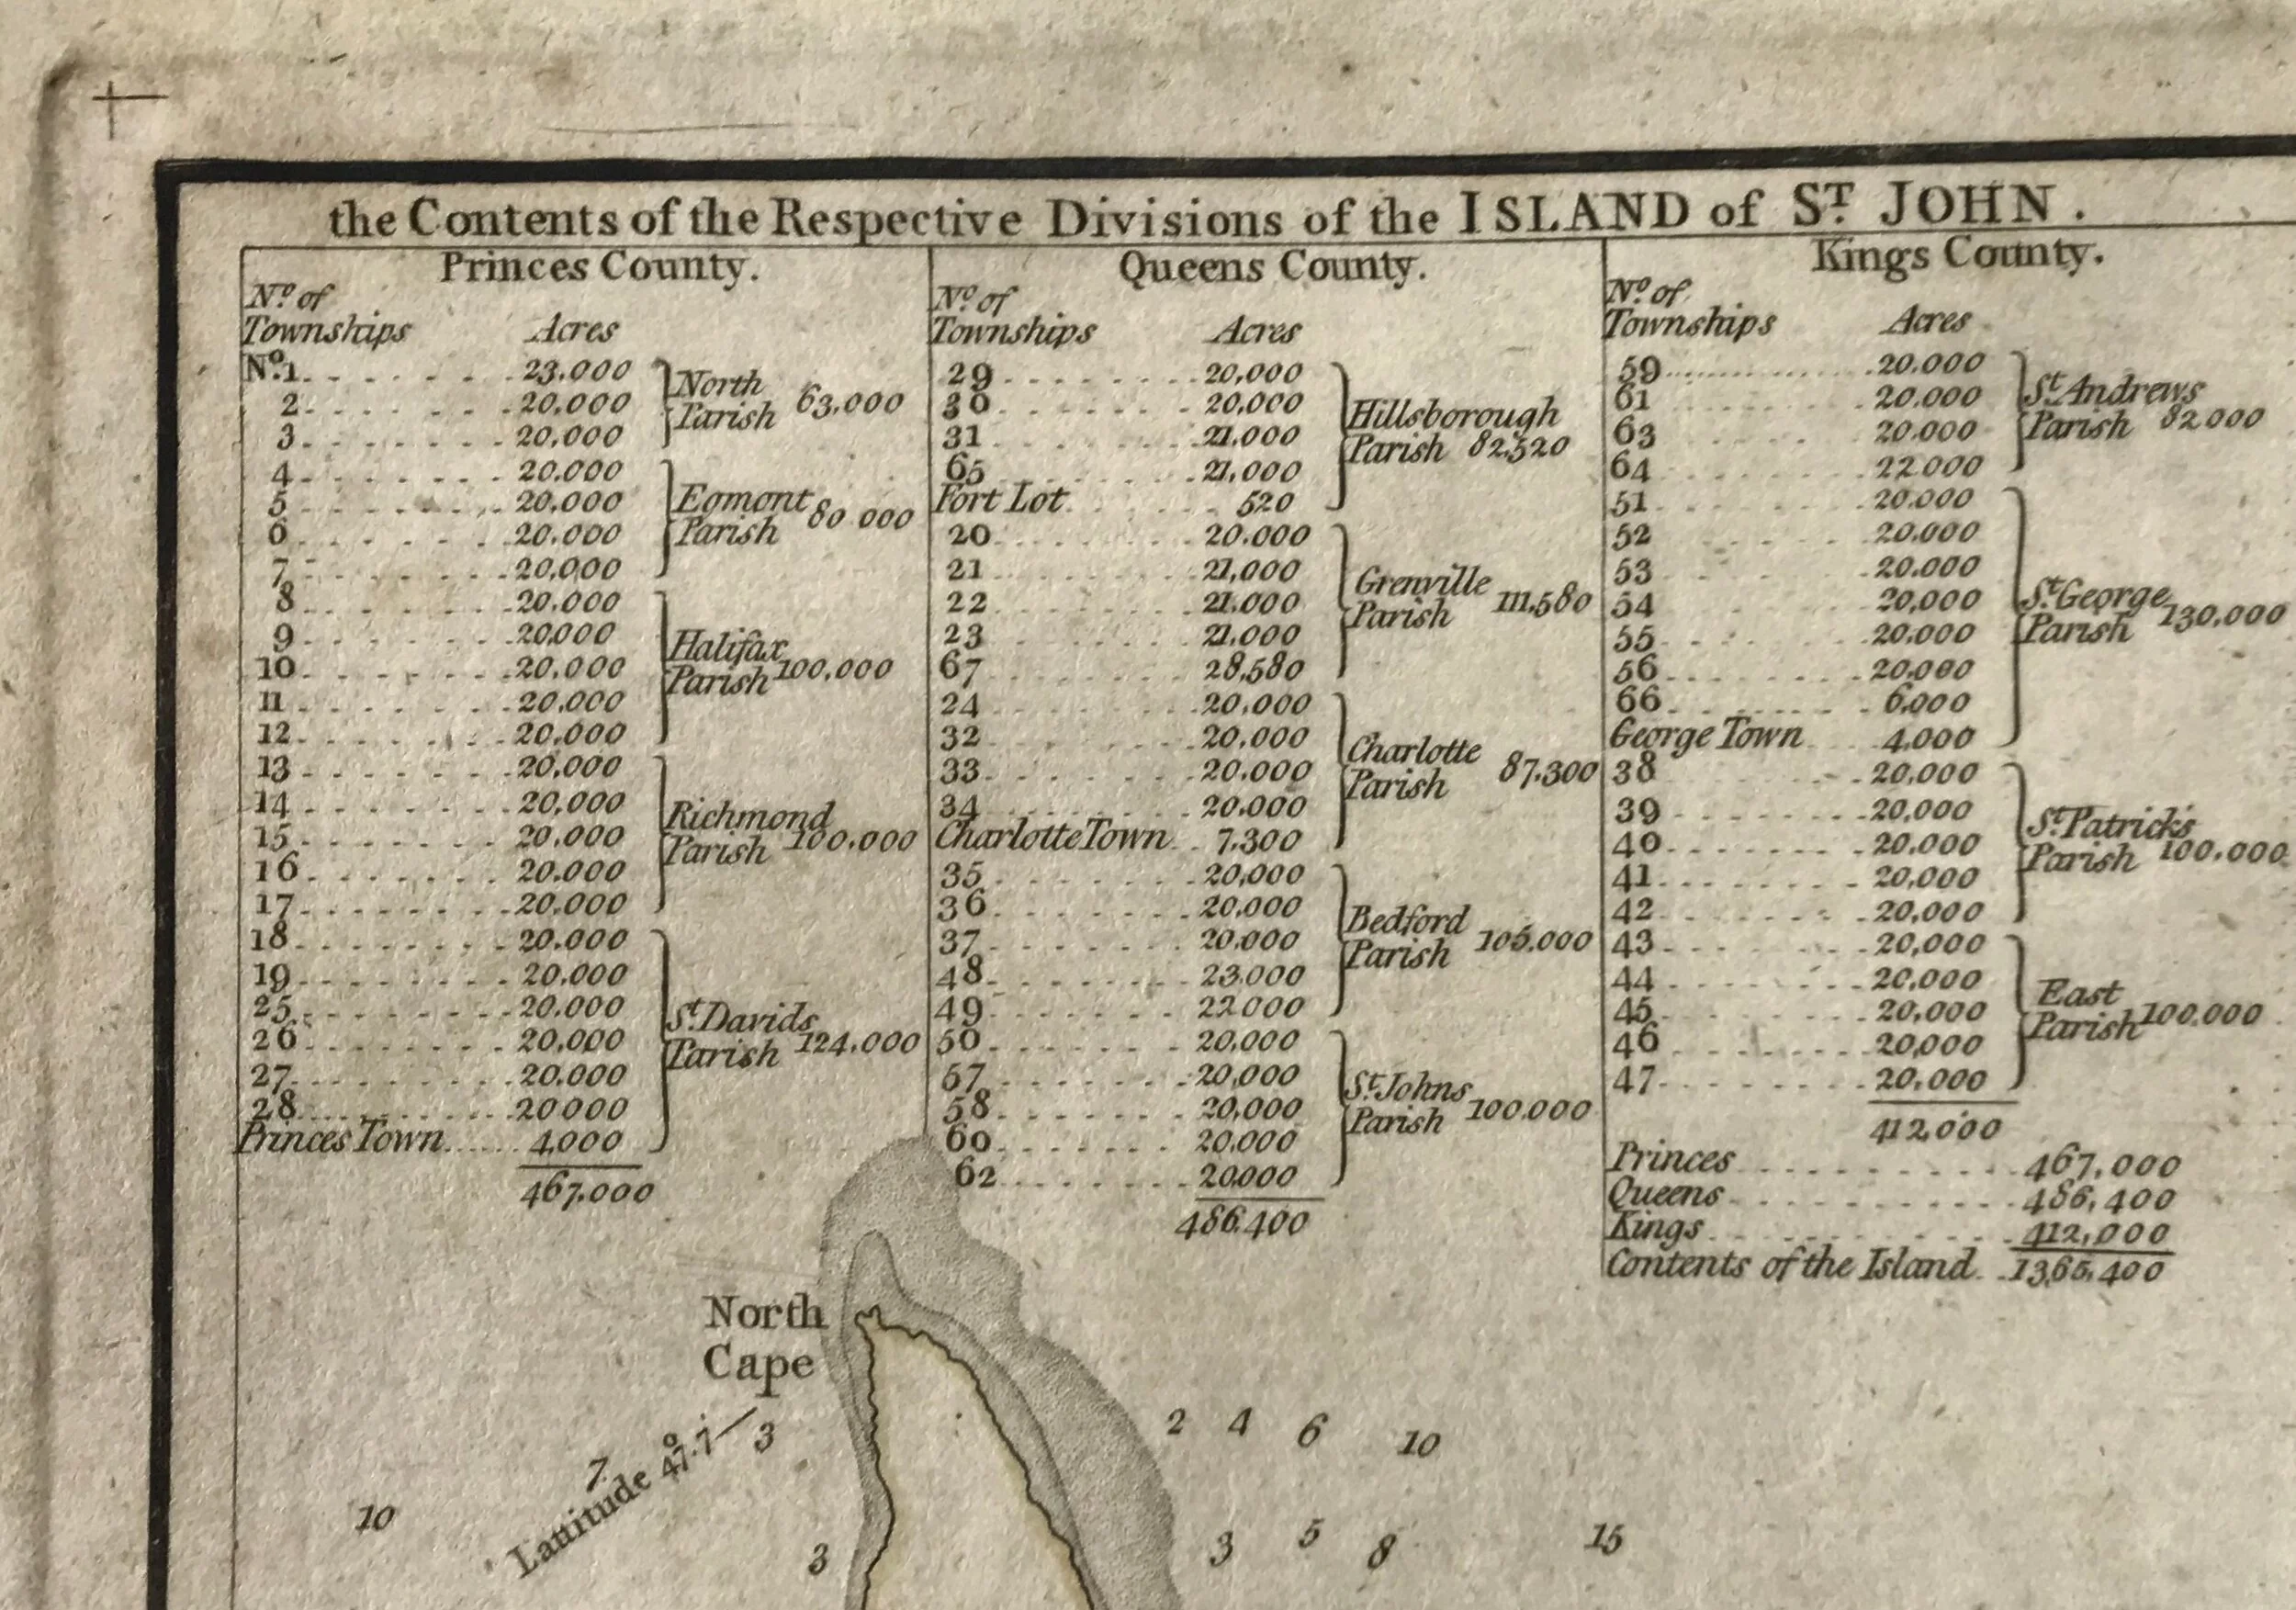 the Contents of the Respective Divisions of the ISLAND of ST. JOHN.
Princes County.
No. of
Townships Acres
No. 1 23.000
2 20,000
3 20,000
North
Parish 63,000
4 20.000
5 20,000
6 20.000
7 20,000
Egmont
Parish 80 000
8 20.000
9 20,000
10 20,000
11 20,000
12 20,000
Halifax
Parish 100,000
13 20,000
14 20,000
15 20.000
16 20.000
17 20.000
Richmond
Parish 100.000
18 20.000
19 20.000
25 20.000
26 20,000
27 20.000
28 20000
Princes Town 4,000
St. Davids
Parish 124.000
467.000
Queens County.
No. of
Townships Acres
29 20,000
30 20,000
31 21,000
65 21,000
Fort Lot 520
Hillsborough
Parish 82,520
20 20.000
21 21,000
22 21.000
23 21,000
67 28,580
Grenville
Parish 111,580
24 20,000
32 20,000
33 20.000
34 20.000
Charlotte Town 7,300
Charlotte
Parish 87,300
35 20,000
36 20,000
37 20,000
48 23.000
49 22000
Bedford
Parish 105.000
50 20,000
57 20,000
58 20,000
60 20,000
62 20,000
St. Johns
Parish 100.000
486.400
Kings County.
No. of
Townships Acres
59 20.000
61 20.000
63 20.000
64 22000
St Andrews
Parish 82000
51 20.000
52 20.000
53 20.000
54 20,000
55 20,000
56 20,000
66 6,000
George Town 4,000
St. George
Parish 130,000
38 20,000
39 20,000
40 20,000
41 20,000
42 20,000
St. Patricks
Parish 100.000
43 20,000
44 20,000
45 20,000
46 20,000
47 20,000
East
Parish 100.000
412,000
Princes 467,000
Queens 486,400
Kings 412,000
Contents of the Island 1365,400
North
Cape
2 4 6 10
Lattitude 47°.7
3
7
10
3
3 5 8 15